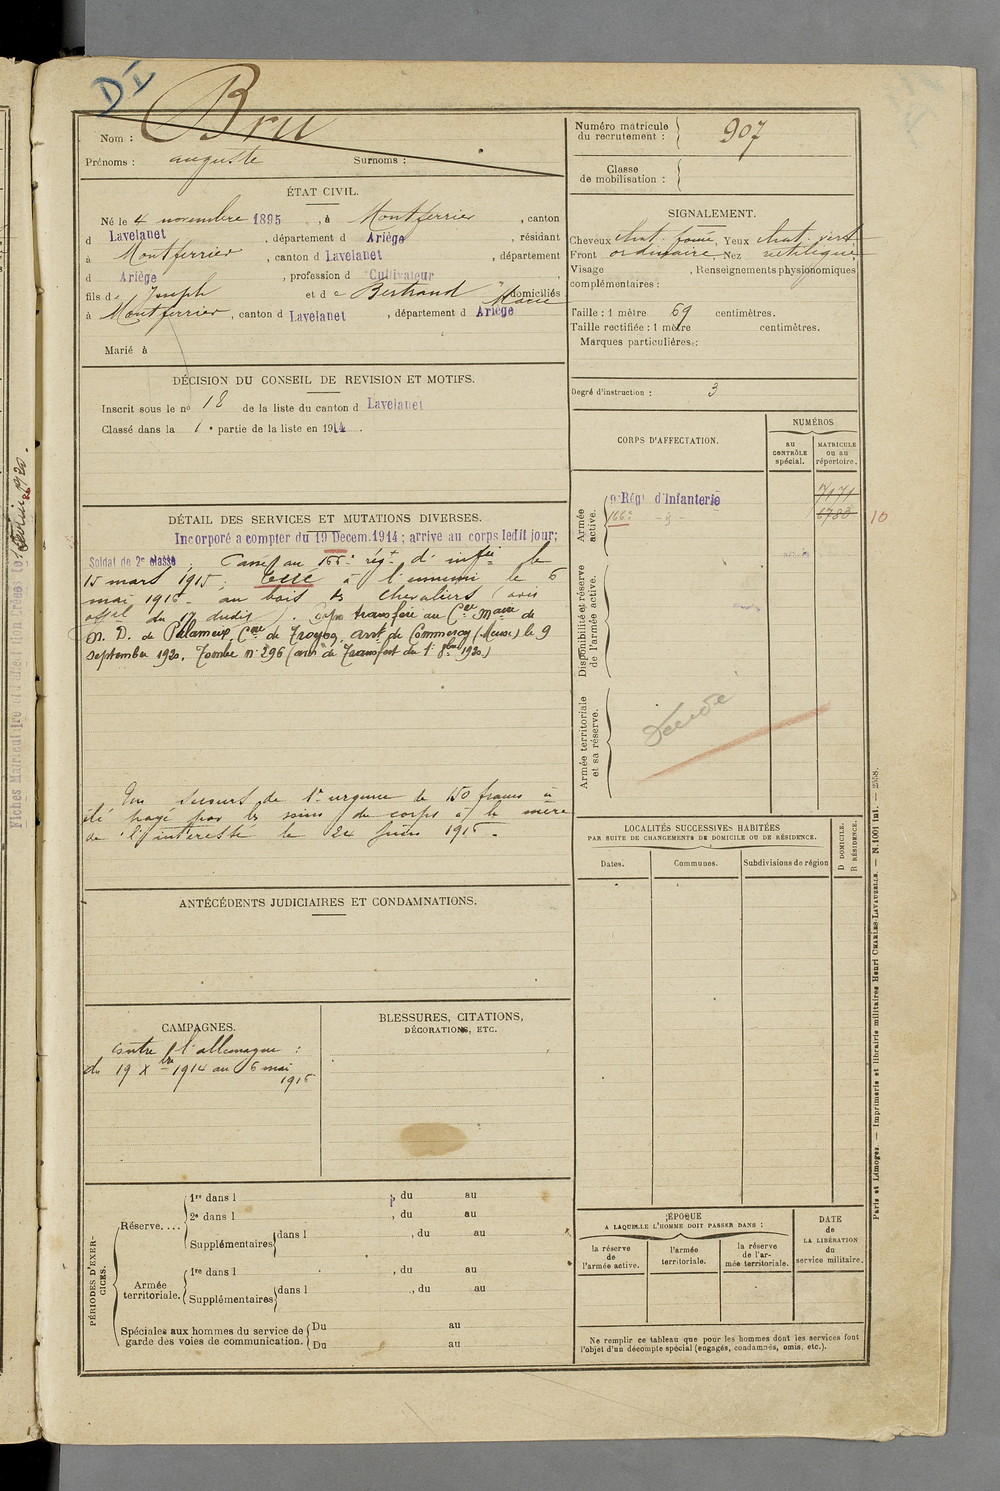 DI
Nom : Bru
Prénoms : auguste Surnoms :
ÉTAT CIVIL.
Né le 4 novembre 1895, à Montferrier, canton
d Lavelanet, département d Ariège, résidant
à Montferrier, canton d Lavelanet, département
d Ariège, profession d Cultivateur
fils de Joseph et de Bertrand Marie domiciliés
à Montferrier, canton d Lavelanet, département d Ariège
Marié à
DÉCISION DU CONSEIL DE REVISION ET MOTIFS.
Inscrit sous le no 18 de la liste du canton d Lavelanet
Classé dans la 1e partie de la liste en 1914.
DÉTAIL DES SERVICES ET MUTATIONS DIVERSES.
Incorporé a compter du 19 Décem. 1914 ; arrive au corps ledit jour;
Soldat de 2e classe, Passé au 166e rég. d'infie le
15 mars 1915. Tué à l'ennemi le 6
mai 1915 au bois des Chevaliers (avis
offel du 17 dudit). Corps transféré au Cre Mre de
N. D. de Palameix, Cne de Troyon, arrt de Commercy (Meuse) le 9
septembre 1920, Tombe n° 296 (avis de Transfert du 1r 8bre 1920)
Un secours de 1re urgence de 150 francs a
été payé par les soins du corps à la mère
de l'intéressé le 24 juin 1915.
ANTÉCÉDENTS JUDICIAIRES ET CONDAMNATIONS.
CAMPAGNES.
contre l'allemagne :
du 19 Xbre 1914 au 6 mai
1915
BLESSURES, CITATIONS,
DÉCORATIONS, ETC.
PÉRIODES D'EXERCICES.
Réserve....
1re dans l , du au
2e dans l , du au
Supplémentaires dans l , du au
Armée territoriale.
1re dans l , du au
Supplémentaires dans l , du au
Spéciales aux hommes du service de garde des voies de communication.
Du au
Du au
Numéro matricule du recrutement : 907
Classe de mobilisation :
SIGNALEMENT.
Cheveux chat. foncé, Yeux chat. vert
Front ordinaire Nez rectiligne
Visage , Renseignements physionomiques
complémentaires :
Taille : 1 mètre 69 centimètres.
Taille rectifiée : 1 mètre centimètres.
Marques particulières :
Degré d'instruction : 3
CORPS D'AFFECTATION.
NUMÉROS
AU CONTRÔLE spécial.
MATRICULE ou au répertoire.
Armée active.
9e Régt d'Infanterie 7171
166e -d- 6783 10
Disponibilité et réserve de l'armée active.
Armée territoriale et sa réserve.
Décédé
LOCALITÉS SUCCESSIVES HABITÉES
PAR SUITE DE CHANGEMENTS DE DOMICILE OU DE RÉSIDENCE.
Dates. Communes. Subdivisions de région
D DOMICILE.
R RÉSIDENCE.
ÉPOQUE
A LAQUELLE L'HOMME DOIT PASSER DANS :
la réserve de l'armée active.
l'armée territoriale.
la réserve de l'armée territoriale.
DATE de LA LIBÉRATION du service militaire.
Ne remplir ce tableau que pour les hommes dont les services font
l'objet d'un décompte spécial (engagés, condamnés, omis, etc.).
Paris et Limoges. — Imprimerie et librairie militaires Henri CHARLES-LAVAUZELLE. — N. 1001 Int. — 2558.